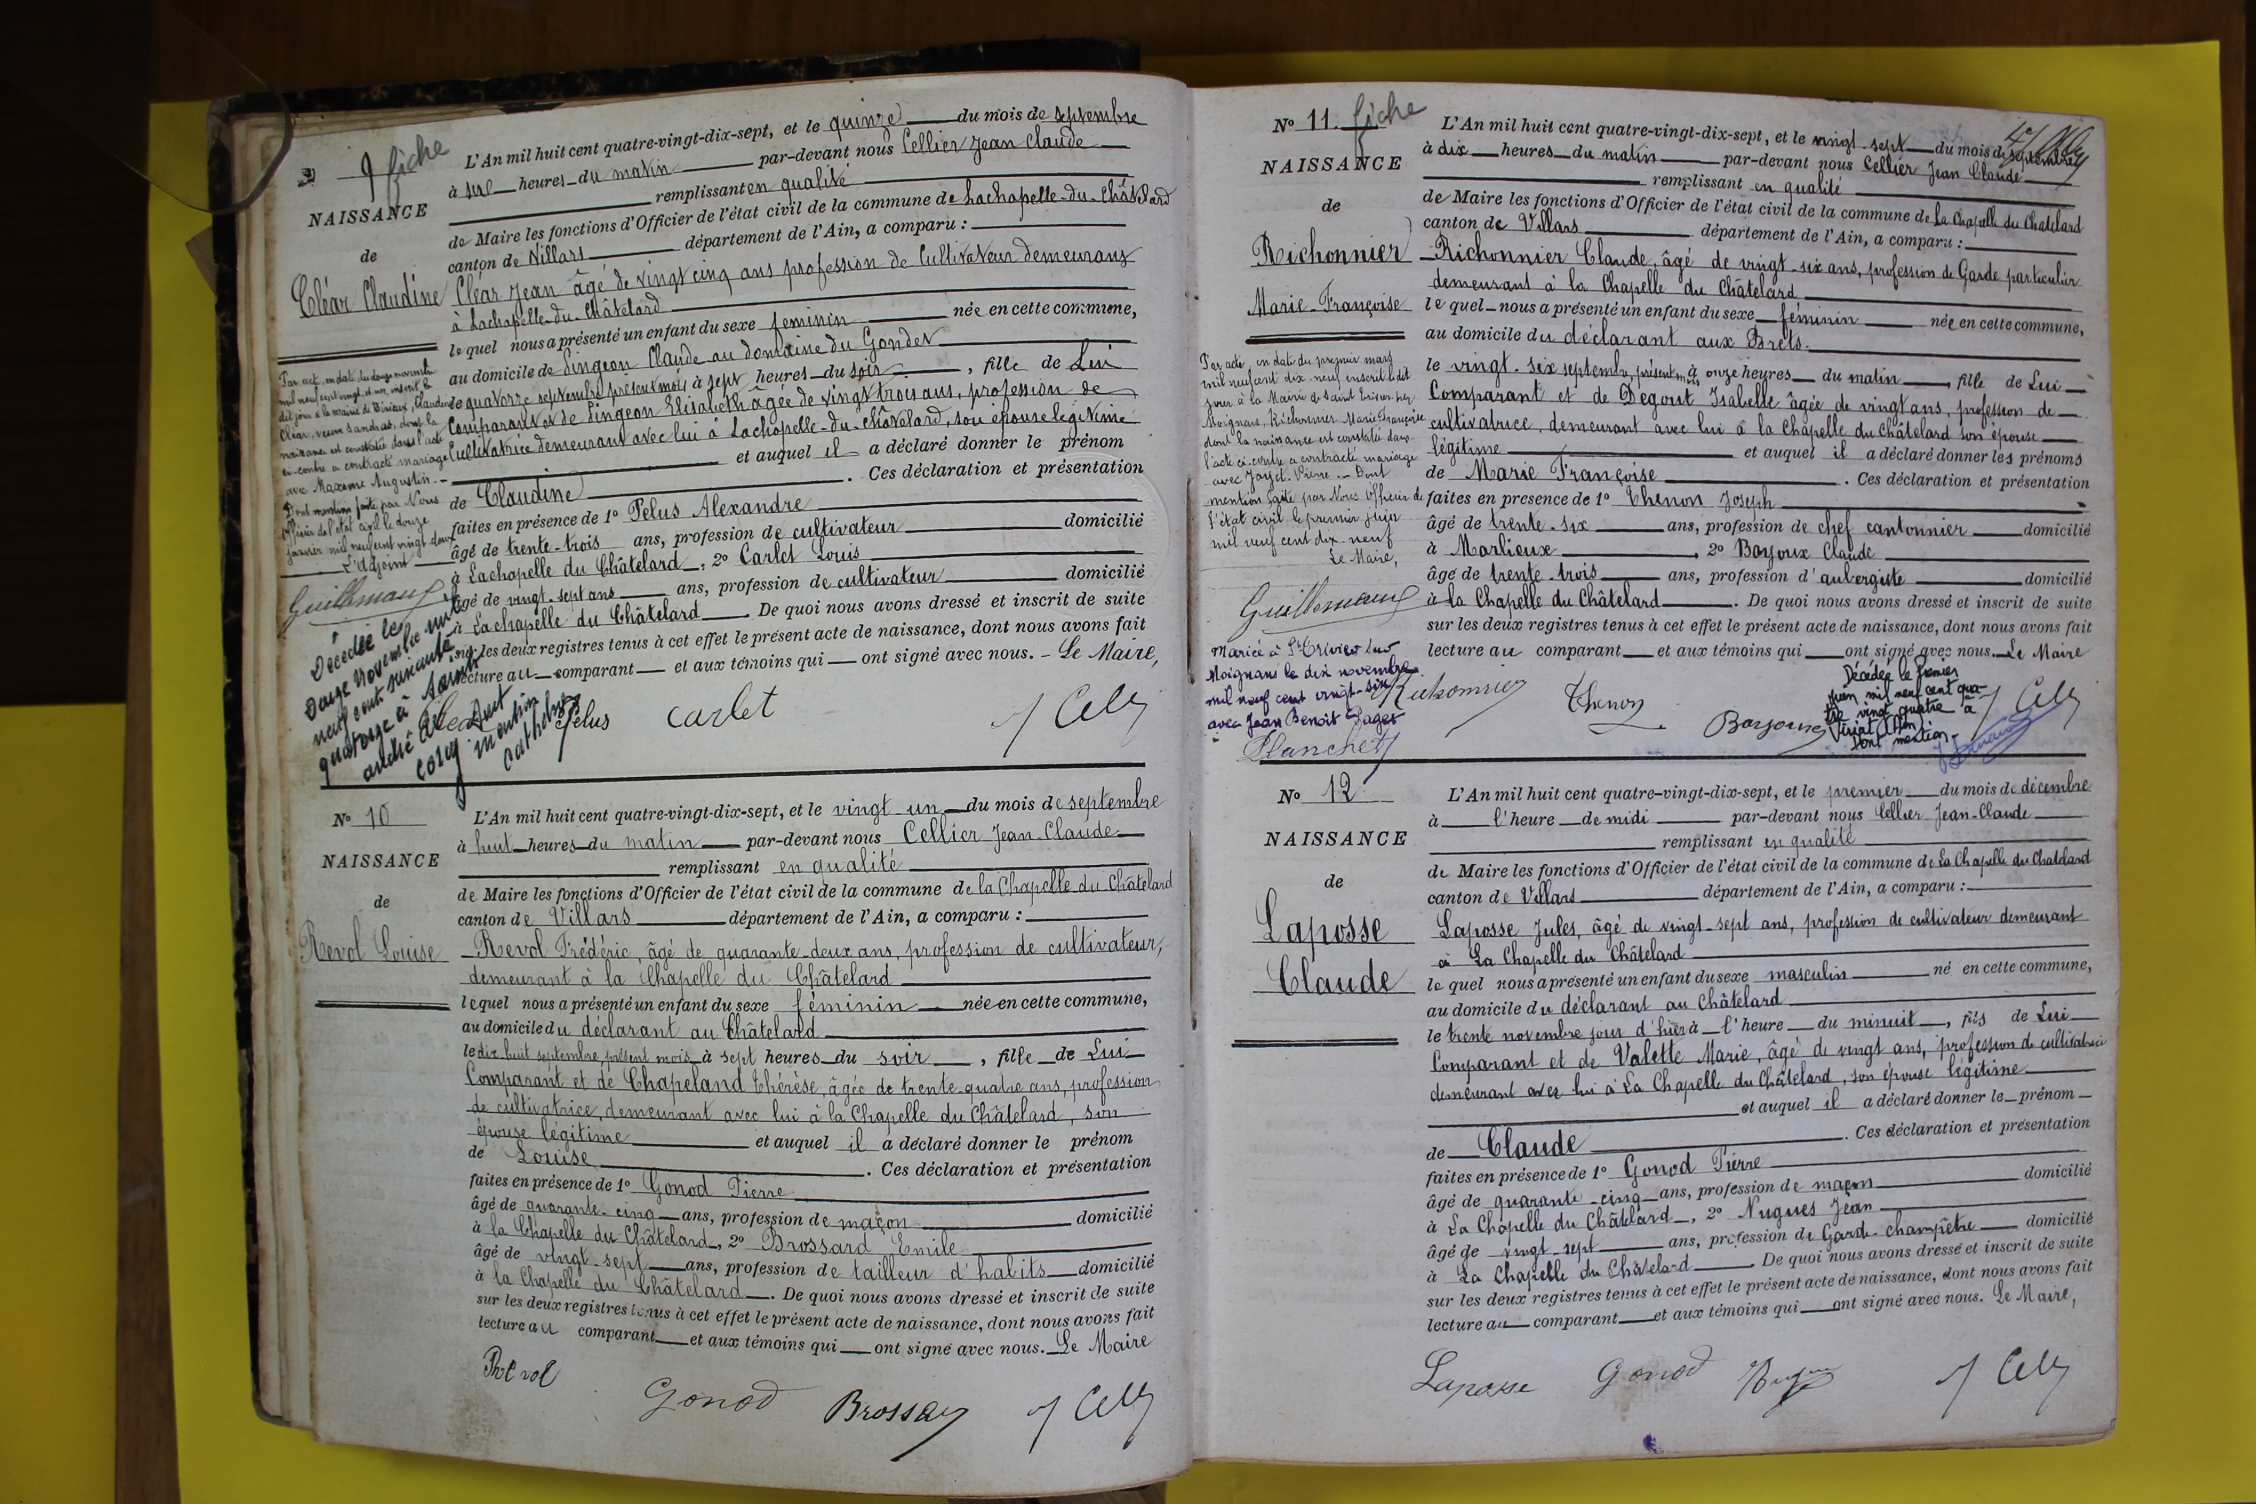 9 fiche
NAISSANCE
de
Cléar Claudine
L'An mil huit cent quatre-vingt-dix-sept, et le quinze du mois de septembre
à six heures du matin par-devant nous Cellier Jean Claude
remplissant en qualité
de Maire les fonctions d'Officier de l'état civil de la commune de Lachapelle-du-Châtelard
canton de Villars département de l'Ain, a comparu :
Cléar Jean âgé de vingt cinq ans profession de Cultivateur demeurant
à Lachapelle-du-Châtelard
lequel nous a présenté un enfant du sexe féminin née en cette commune,
au domicile de Pingeon Claude au domaine du Gondet
le quatorze septembre présent mois à sept heures du soir, fille de Lui
Comparant et de Pingeon Elisabeth âgée de vingt trois ans, profession de
Cultivatrice demeurant avec lui à Lachapelle-du-Châtelard, son épouse légitime
et auquel il a déclaré donner le prénom
de Claudine . Ces déclaration et présentation
faites en présence de 1º Pelus Alexandre
âgé de trente-trois ans, profession de cultivateur domicilié
à Lachapelle du Châtelard, 2º Carlet Louis
âgé de vingt-sept ans ans, profession de cultivateur domicilié
à Lachapelle du Châtelard. De quoi nous avons dressé et inscrit de suite
sur les deux registres tenus à cet effet le présent acte de naissance, dont nous avons fait
lecture au comparant et aux témoins qui ont signé avec nous. - Le Maire,
Par act, en date du douze novembre
mil neuf cent vingt et un inscrit le
dit jour à la mairie de Birieux, Claudine
Cléar, veuve Sandras, dont la
naissance est constatée dans l'acte
ci-contre a contracté mariage
avec Maxime Augustin.-
Dont mention faite par Nous
Officier de l'état civil le douze
janvier mil neuf cent vingt deux
L'Adjoint
Guillemaud
Décédée le
douze Novembre mil
neuf cent soixante
quatorze à Saint
André de
Corcy
Dont
mention
Pelus Carlet J Cellier
Nº 10
NAISSANCE
de
Revol Louise
L'An mil huit cent quatre-vingt-dix-sept, et le vingt un du mois de septembre
à huit heures du matin par-devant nous Cellier Jean Claude
remplissant en qualité
de Maire les fonctions d'Officier de l'état civil de la commune de la Chapelle du Châtelard
canton de Villars département de l'Ain, a comparu :
Revol Frédéric, âgé de quarante-deux ans, profession de cultivateur,
demeurant à la Chapelle du Châtelard
lequel nous a présenté un enfant du sexe féminin née en cette commune,
au domicile du déclarant au Châtelard
le dix huit septembre, présent mois à sept heures du soir, fille de Lui
Comparant et de Chapeland Thérèse, âgée de trente-quatre ans, profession
de cultivatrice, demeurant avec lui à la Chapelle du Châtelard, son
épouse légitime et auquel il a déclaré donner le prénom
de Louise . Ces déclaration et présentation
faites en présence de 1º Gonod Pierre
âgé de quarante-cinq ans, profession de maçon domicilié
à la Chapelle du Châtelard, 2º Brossard Emile
âgé de vingt-sept ans, profession de tailleur d'habits domicilié
à la Chapelle du Châtelard. De quoi nous avons dressé et inscrit de suite
sur les deux registres tenus à cet effet le présent acte de naissance, dont nous avons fait
lecture au comparant et aux témoins qui ont signé avec nous. Le Maire
Revol
Gonod Brossard J Cellier
Nº 11 fiche
NAISSANCE
de
Richonnier
Marie-Françoise
L'An mil huit cent quatre-vingt-dix-sept, et le vingt-sept du mois de septembre
à dix heures du matin par-devant nous Cellier Jean Claude
remplissant en qualité
de Maire les fonctions d'Officier de l'état civil de la commune de La Chapelle du Chatelard
canton de Villars département de l'Ain, a comparu :
Richonnier Claude, âgé de vingt-six ans, profession de Garde particulier
demeurant à la Chapelle du Châtelard
lequel nous a présenté un enfant du sexe féminin née en cette commune,
au domicile du déclarant aux Brets.
le vingt-six septembre, présent mois à onze heures du matin, fille de Lui
Comparant et de Degout Isabelle âgée de vingt ans, profession de
cultivatrice, demeurant avec lui à la Chapelle du Châtelard son épouse
légitime et auquel il a déclaré donner les prénoms
de Marie Françoise . Ces déclaration et présentation
faites en presence de 1º Thenon Joseph
âgé de trente-six ans, profession de chef cantonnier domicilié
à Marlieux, 2º Bayoux Claude
âgé de trente-trois ans, profession d'aubergiste domicilié
à la Chapelle du Châtelard. De quoi nous avons dressé et inscrit de suite
sur les deux registres tenus à cet effet le présent acte de naissance, dont nous avons fait
lecture au comparant et aux témoins qui ont signé avec nous. Le Maire
Par acte, en date du premier mars
mil neuf cent dix neuf inscrit ledit
jour à la Mairie de Saint Trivier sur
Moignans, Richonnier Marie Françoise
dont la naissance est constatée dans
l'acte ci-contre a contracté mariage
avec Pierre. Dont
mention faite par Nous Officier de
l'état civil le premier juin
mil neuf cent dix-neuf
Le Maire,
Guillemaud
Mariée à St Trivier sur
Moignans le dix novembre
mil neuf cent vingt-six
avec Jean Benoit Paget
Planchet
Richonnier Thenon Bayoux J Cellier
Décédée le premier
juin mil neuf cent qua-
tre vingt quatre à
Viriat (Ain)
Dont mention.
Nº 12
NAISSANCE
de
Laposse
Claude
L'An mil huit cent quatre-vingt-dix-sept, et le premier du mois de décembre
à l'heure de midi par-devant nous Cellier Jean-Claude
remplissant en qualité
de Maire les fonctions d'Officier de l'état civil de la commune de La Chapelle du Chatelard
canton de Villars département de l'Ain, a comparu :
Laposse Jules, âgé de vingt-sept ans, profession de cultivateur demeurant
à La Chapelle du Châtelard
lequel nous a présenté un enfant du sexe masculin né en cette commune,
au domicile du déclarant au Châtelard
le trente novembre jour d'hier à l'heure du minuit, fils de Lui
Comparant et de Valette Marie, âgé de vingt ans, profession de cultivatrice
demeurant avec lui à La Chapelle du Châtelard, son épouse légitime
et auquel il a déclaré donner le prénom
de Claude . Ces déclaration et présentation
faites en présence de 1º Gonod Pierre
âgé de quarante-cinq ans, profession de maçon domicilié
à La Chapelle du Châtelard, 2º Nugues Jean
âgé de vingt-sept ans, profession de Garde-champêtre domicilié
à La Chapelle du Châtelard. De quoi nous avons dressé et inscrit de suite
sur les deux registres tenus à cet effet le présent acte de naissance, dont nous avons fait
lecture au comparant et aux témoins qui ont signé avec nous. Le Maire,
Laposse Gonod Nugues J Cellier